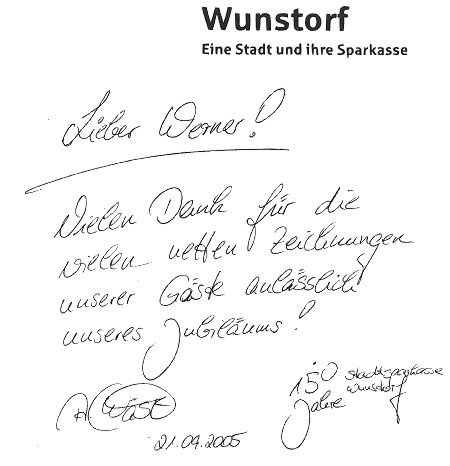 Wunstorf
Eine Stadt und ihre Sparkasse
Lieber Werner!
Vielen Dank für die
vielen netten Zeichnungen
unserer Gäste anlässlich
unseres Jubiläums!
150 Stadtsparkasse
Jahre Wunstorf
21.09.2005